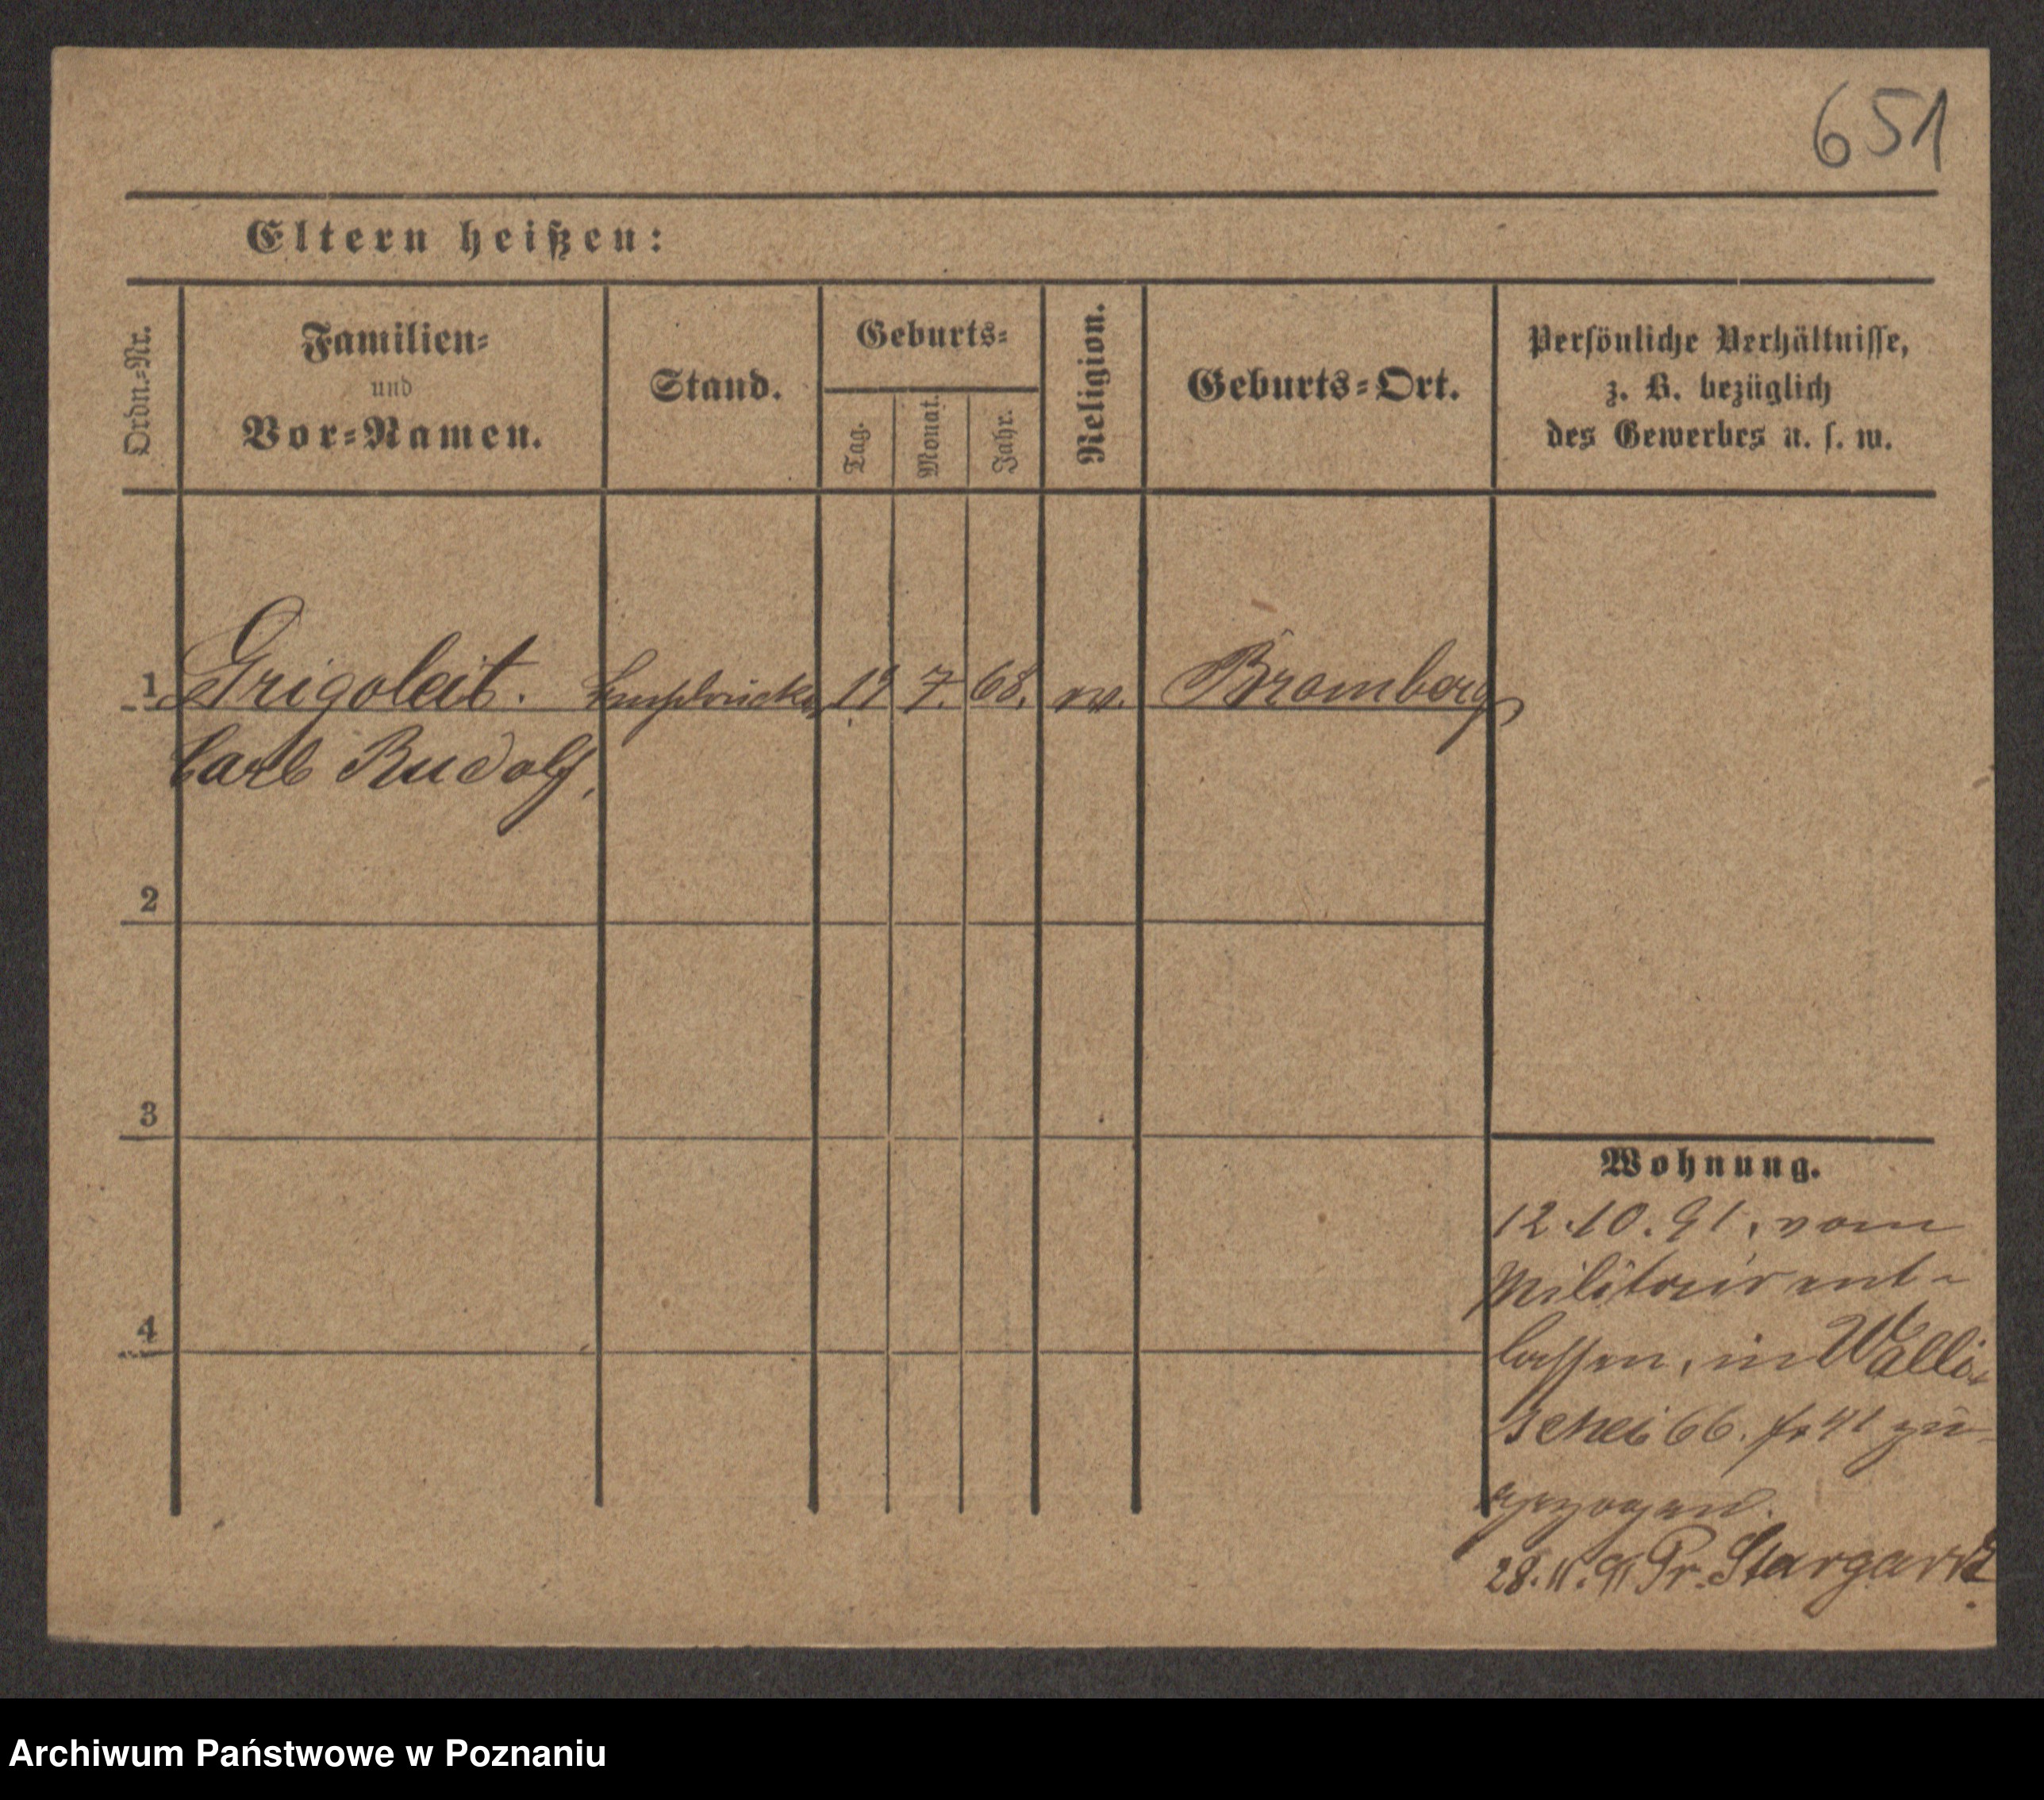 651
Eltern heißen:
Ordn.-Nr.
Familien-
und
Vor-Namen.
Stand.
Geburts-
Tag.
Monat.
Jahr.
Religion.
Geburts-Ort.
Persönliche Verhältnisse,
z. B. bezüglich
des Gewerbes u. s. w.
1 Grigoleit. 7. 68. ev. Bromberg
Carl Rudolf,
2
3
4
Wohnung.
12.10.91. vom
Militair ent-
lassen, in Walli-
schei 66. zu-
gezogen.
28.11.91 Pr. Stargard
Archiwum Państwowe w Poznaniu